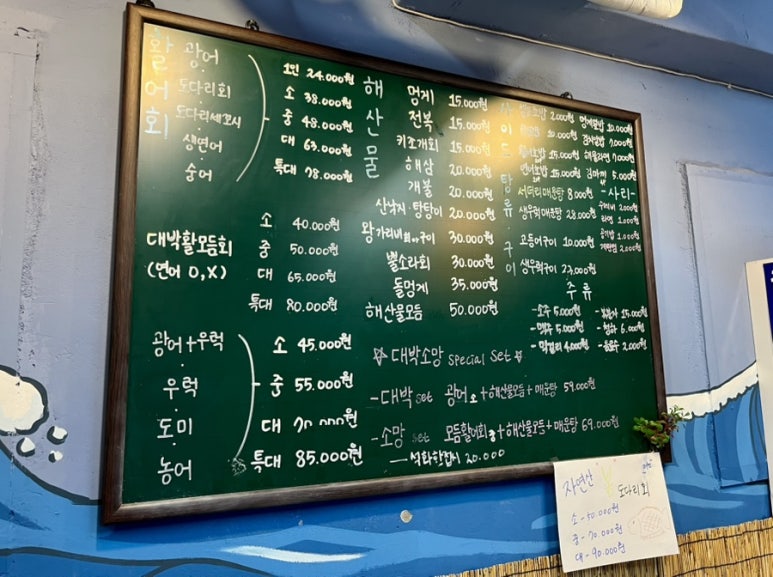 활어회
광어
도다리회
도다리세꼬시
생연어
숭어
1인 24.000원
소 38.000원
중 48.000원
대 63.000원
특대 78.000원
대박활모듬회
(연어 O,X)
소 40.000원
중 50.000원
대 65.000원
특대 80.000원
광어+우럭
우럭
도미
농어
소 45.000원
중 55.000원
대 70.000원
특대 85.000원
해산물
멍게 15.000원
전복 15.000원
키조개회 15.000원
해삼 20.000원
개불 20.000원
산낙지·탕탕이 20.000원
왕가리비회or구이 30.000원
뿔소라회 30.000원
돌멍게 35.000원
해산물모듬 50.000원
사이드
2.000원
10.000원
15.000원
연어초밥 15.000원
멍게비빔밥 10.000원
7.000원
해물라면 7.000원
5.000원
탕류
서더리매운탕 8.000원
생우럭매운탕 28.000원
-사리-
수제비 2.000원
라면 1.000원
공기밥 1.000원
2.000원
구이
고등어구이 10.000원
생우럭구이
주류
-소주 5.000원
-맥주 5.000원
-막걸리 4.000원
15.000원
-청하 6.000원
-음료수 2.000원
대박소망 special set
-대박 set 광어소+해산물모듬+매운탕 59.000원
-소망 set 모듬활어회중+해산물모듬+매운탕 69.000원
석화한접시 20.000
자연산
도다리회
소-50.000원
중-70.000원
대-90.000원